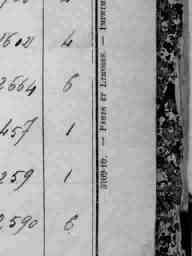 1602 4
2664 6
457 1
259 1
2,590 6
5109-10. — PARIS ET LIMOGES. — IMPRIM